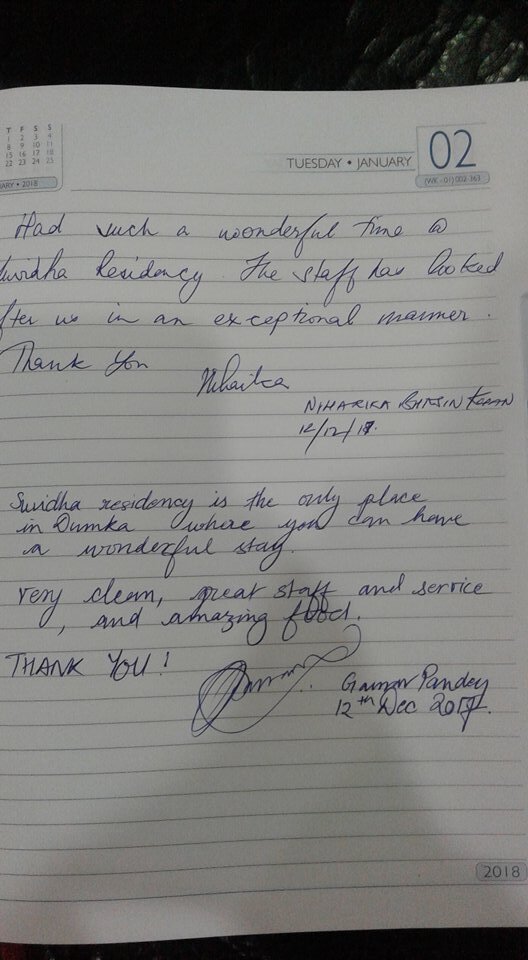 T F S S
1 2 3 4
8 9 10 11
15 16 17 18
22 23 24 25
ARY • 2018
TUESDAY • JANUARY 02
(WK - 01) 002-363
Had such a wonderful time @
uvidha Residency. The staff has looked
fter us in an exceptional manner.
Thank You
Niharika
NIHARIKA BHASIN KHAN
12/12/17.
Suvidha residency is the only place
in Dumka where you can have
a wonderful stay.
Very clean, great staff and service
, and amazing food.
THANK YOU!
Gaurav Pandey
12th Dec 2017.
2018